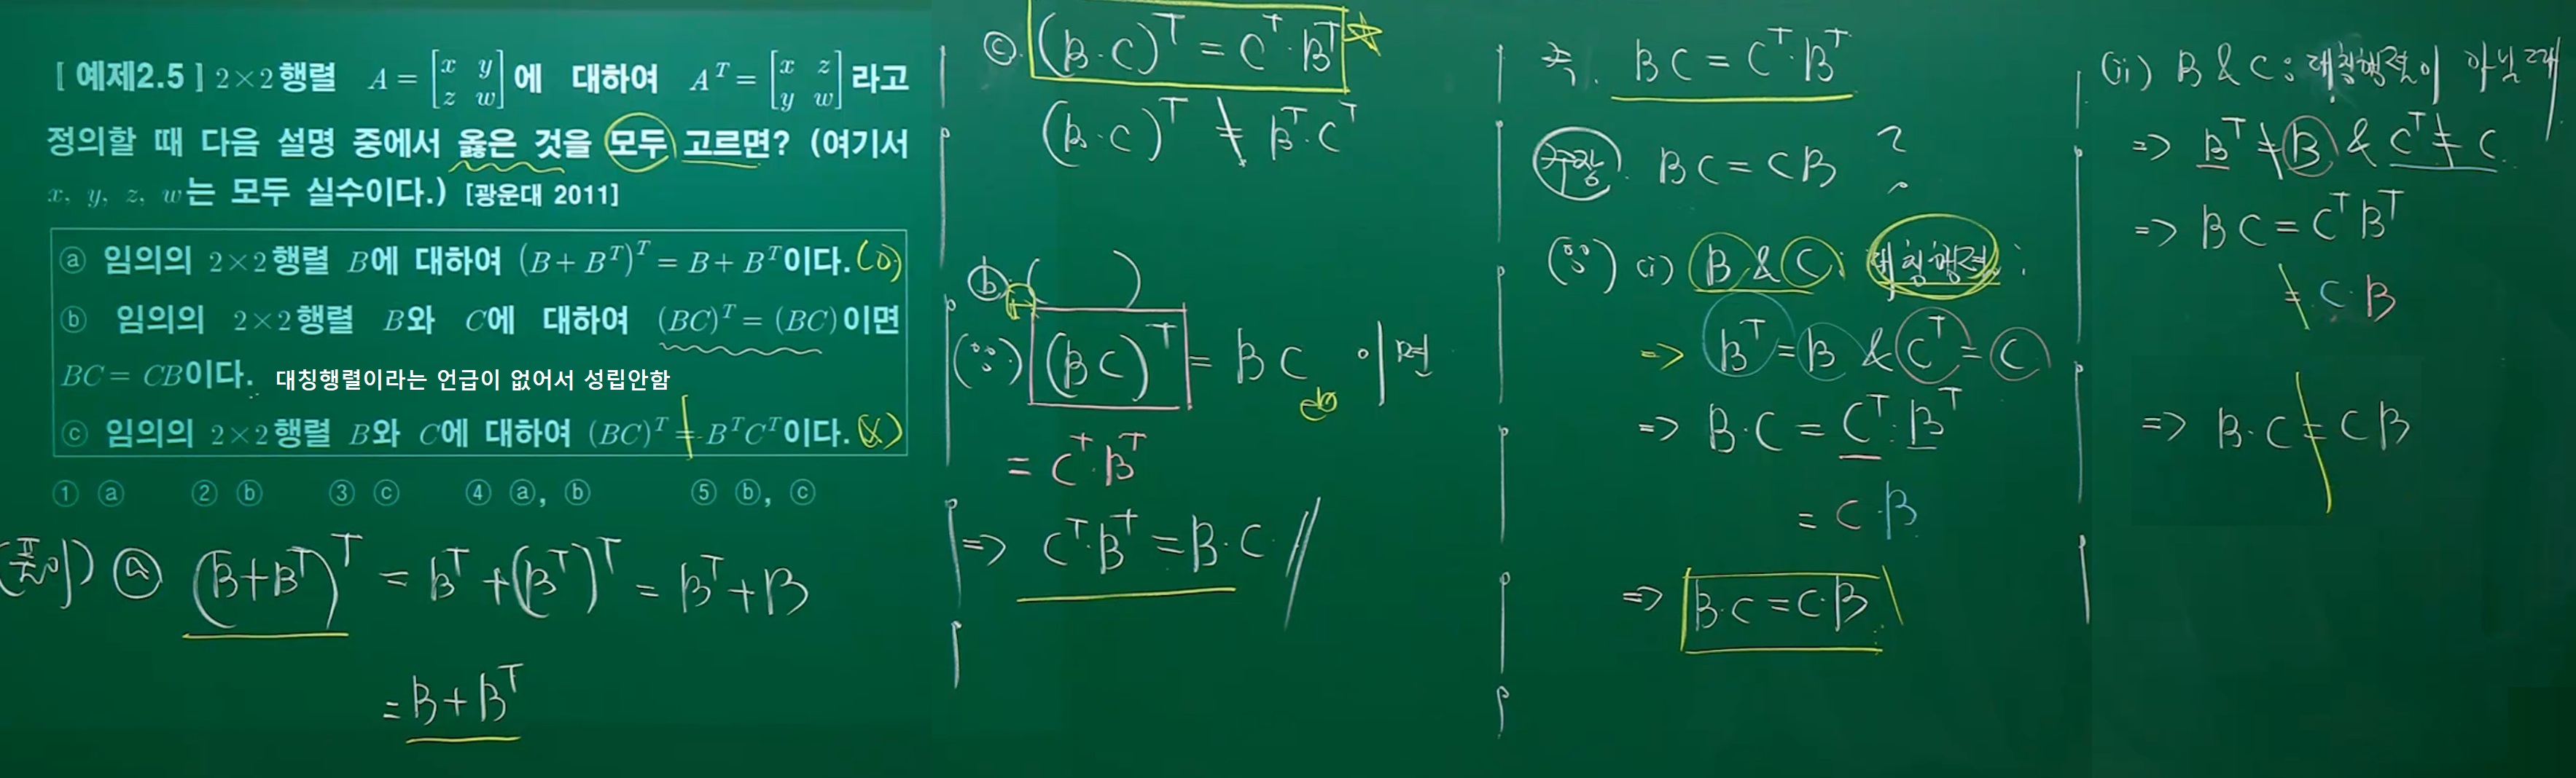 [ 예제2.5 ] 2×2행렬 A = [x y z w]에 대하여 A^T = [x z y w]라고
정의할 때 다음 설명 중에서 옳은 것을 모두 고르면? (여기서
x, y, z, w는 모두 실수이다.) [광운대 2011]
ⓐ 임의의 2×2행렬 B에 대하여 (B+B^T)^T = B+B^T이다. (O)
ⓑ 임의의 2×2행렬 B와 C에 대하여 (BC)^T = (BC)이면
BC = CB이다. 대칭행렬이라는 언급이 없어서 성립안함
ⓒ 임의의 2×2행렬 B와 C에 대하여 (BC)^T = B^T C^T이다. (X)
① ⓐ ② ⓑ ③ ⓒ ④ ⓐ, ⓑ ⑤ ⓑ, ⓒ
(풀이) ⓐ (B+B^T)^T = B^T+(B^T)^T = B^T+B
= B+B^T
ⓒ. (B·C)^T = C^T·B^T ☆
(B·C)^T ≠ B^T·C^T
ⓑ ( )
(∵) (BC)^T = BC 이면
= C^T·B^T
⇒ C^T·B^T = B·C //
즉. BC = C^T·B^T
주장. BC = CB ?
(∵) (i) B & C : 대칭행렬 :
⇒ B^T = B & C^T = C
⇒ B·C = C^T·B^T
= C·B
⇒ B·C = C·B
(ii) B & C : 대칭행렬이 아닐 때
⇒ B^T ≠ B & C^T ≠ C
⇒ BC = C^T B^T
≠ C·B
⇒ B·C ≠ CB